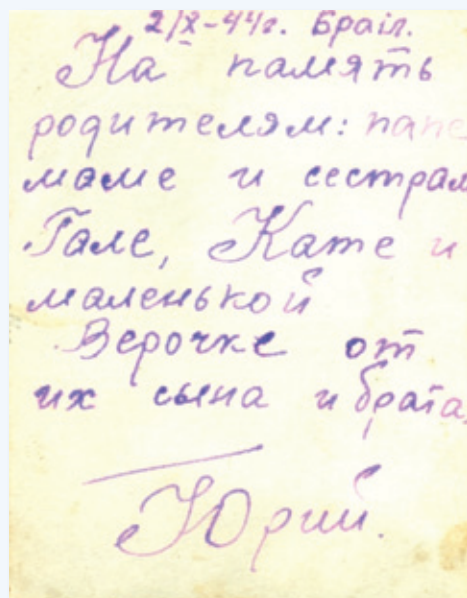 2/X-44г. Браїл.
На память
родителям: папе
маме и сестрам
Гале, Кате и
маленькой
Верочке от
их сына и брата.
Юрий.